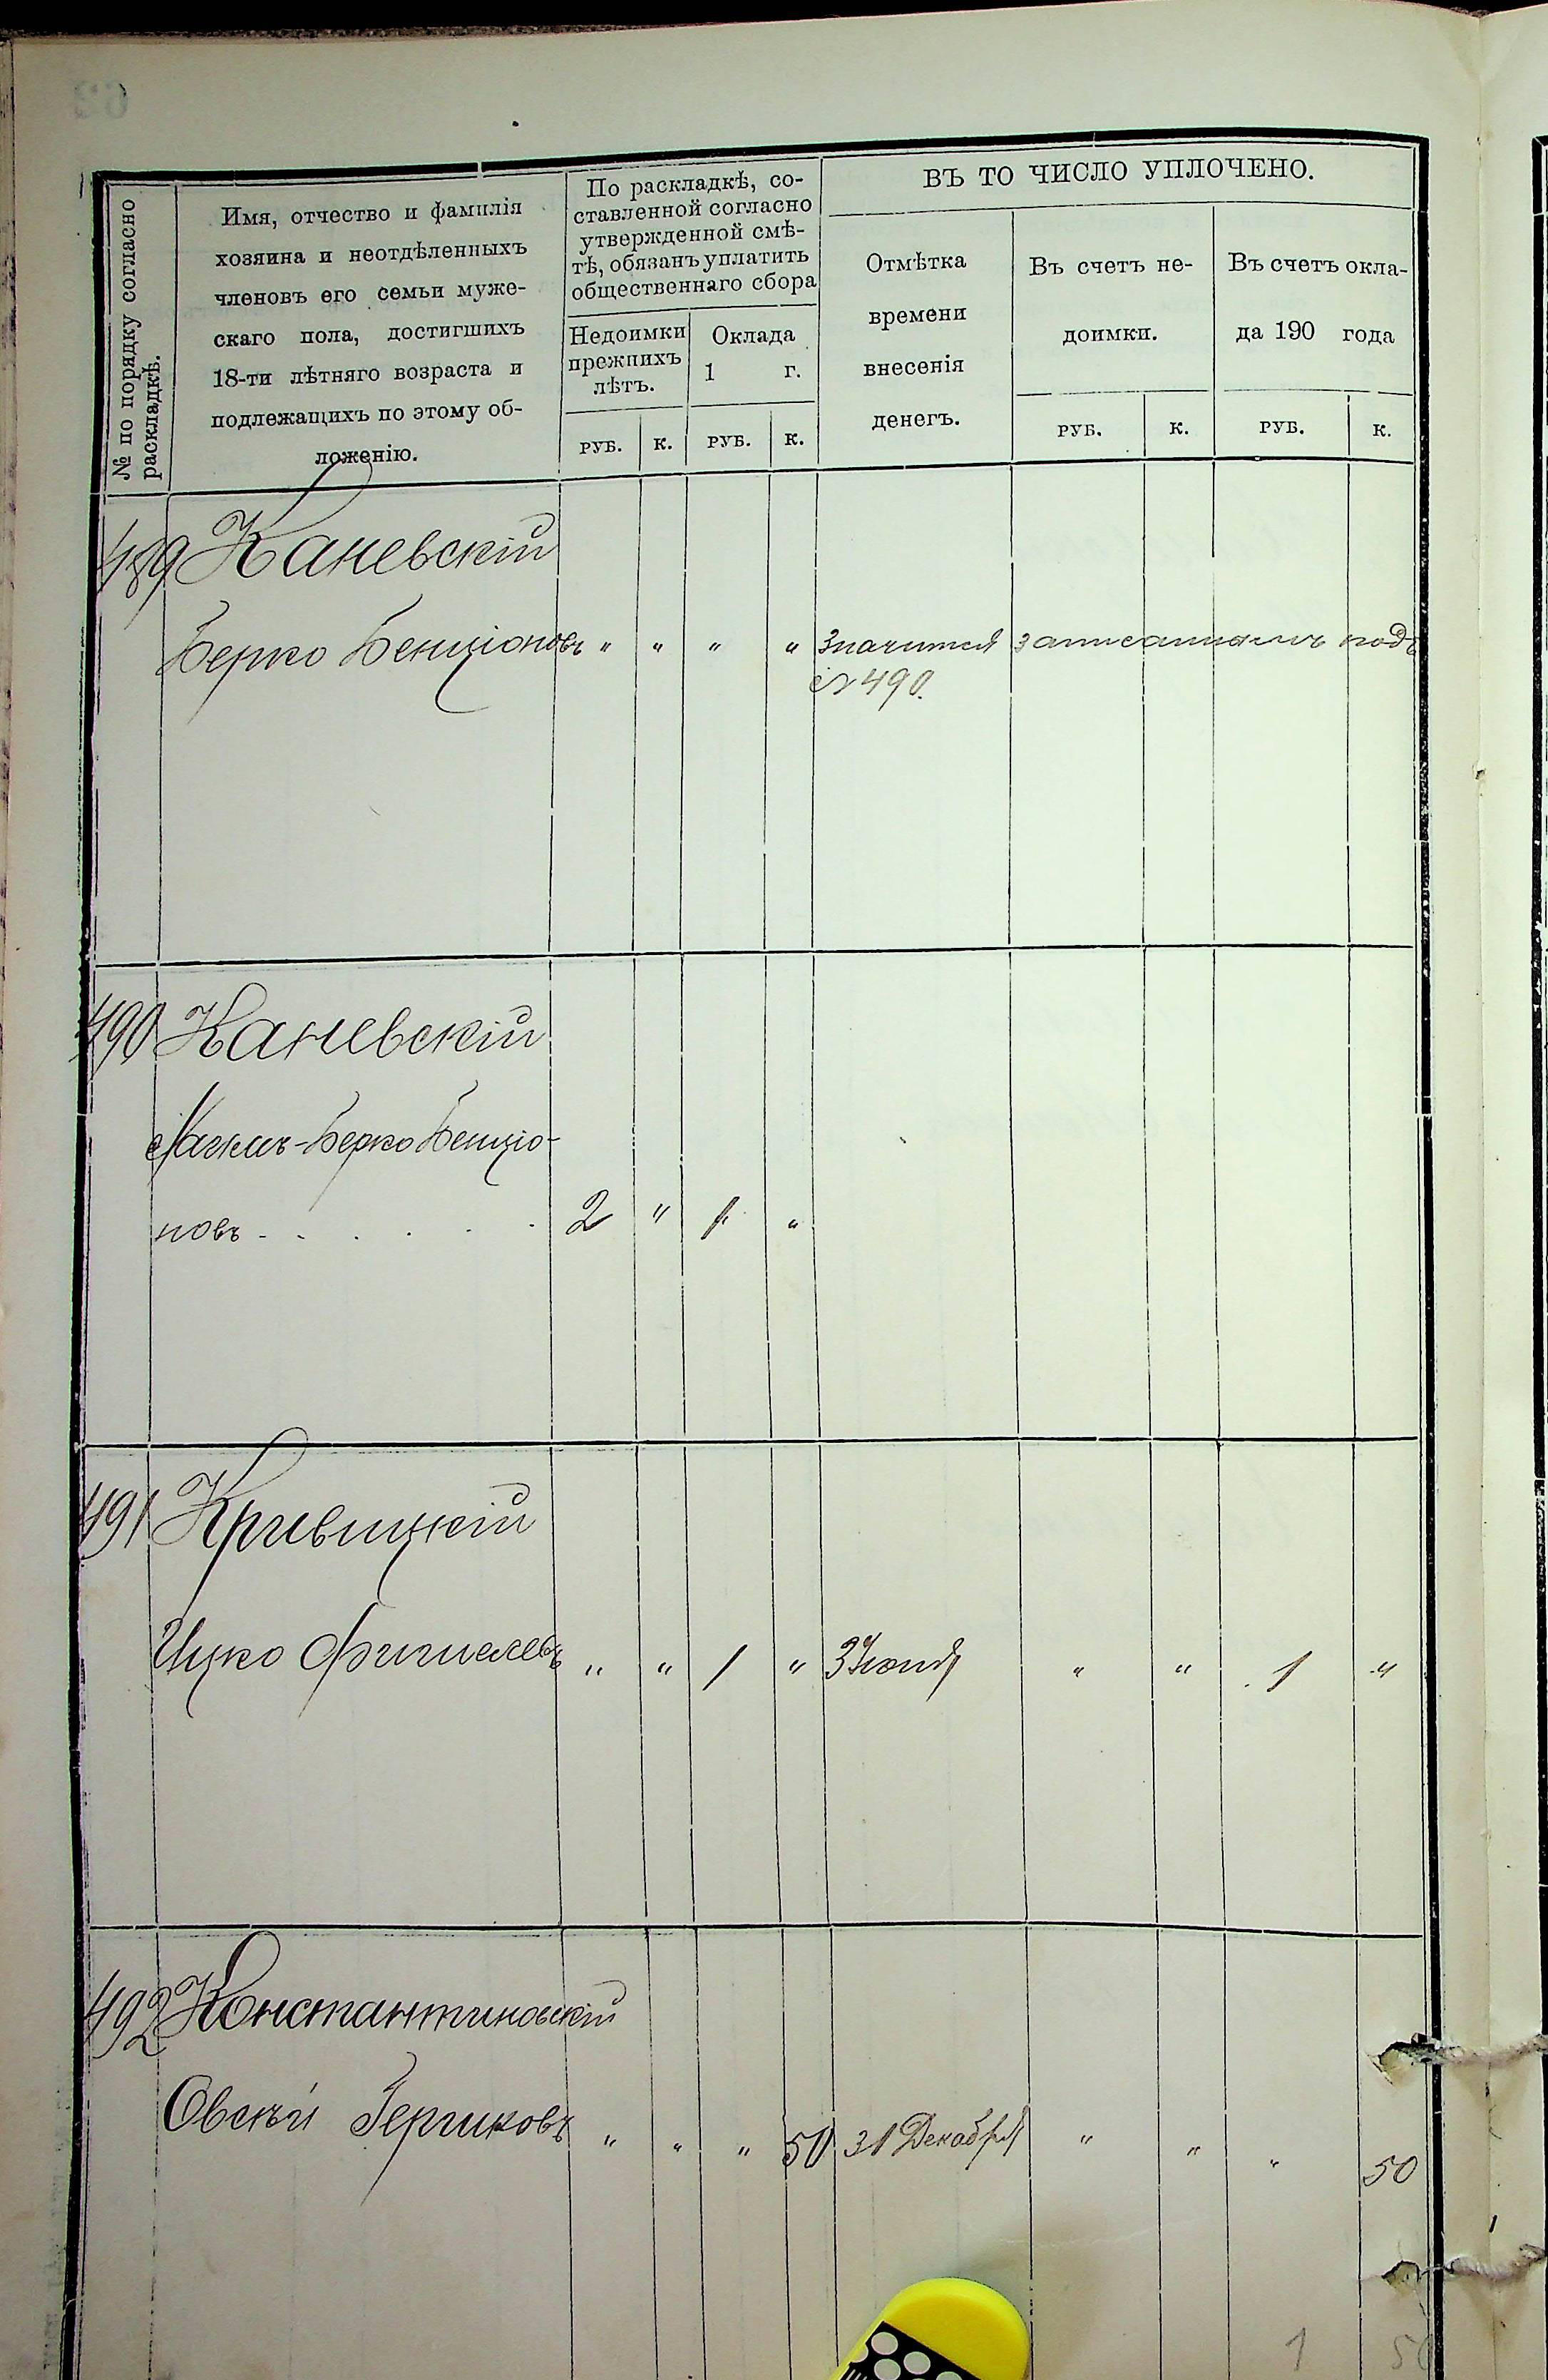 № по порядку согласно
раскладкѣ.
Имя, отчество и фамилія
хозяина и неотдѣленныхъ
членовъ его семьи муже-
скаго пола, достигшихъ
18-ти лѣтняго возраста и
подлежащихъ по этому об-
ложенію.
По раскладкѣ, со-
ставленной согласно
утвержденной смѣ-
тѣ, обязанъ уплатить
общественнаго сбора
Недоимки
прежнихъ
лѣтъ.
Оклада
1 г.
РУБ. К. РУБ. К.
ВЪ ТО ЧИСЛО УПЛОЧЕНО.
Отмѣтка
времени
внесенія
денегъ.
Въ счетъ не-
доимки.
Въ счетъ окла-
да 190 года
РУБ. К. РУБ. К.
489 Каневскій
Берко Бенціоновъ " " " " Значится записаннымъ подъ
№ 490.
490 Каневскій
Берко Бенціо-
новъ - . . . . . 2 " 1 "
491 Кривицкій
Ицко Фишелевъ " " 1 " 3 Іюня " " 1 "
492 Константиновскій
Овсѣй Гершковъ " " " 50 31 Декабря " " " 50
1 50